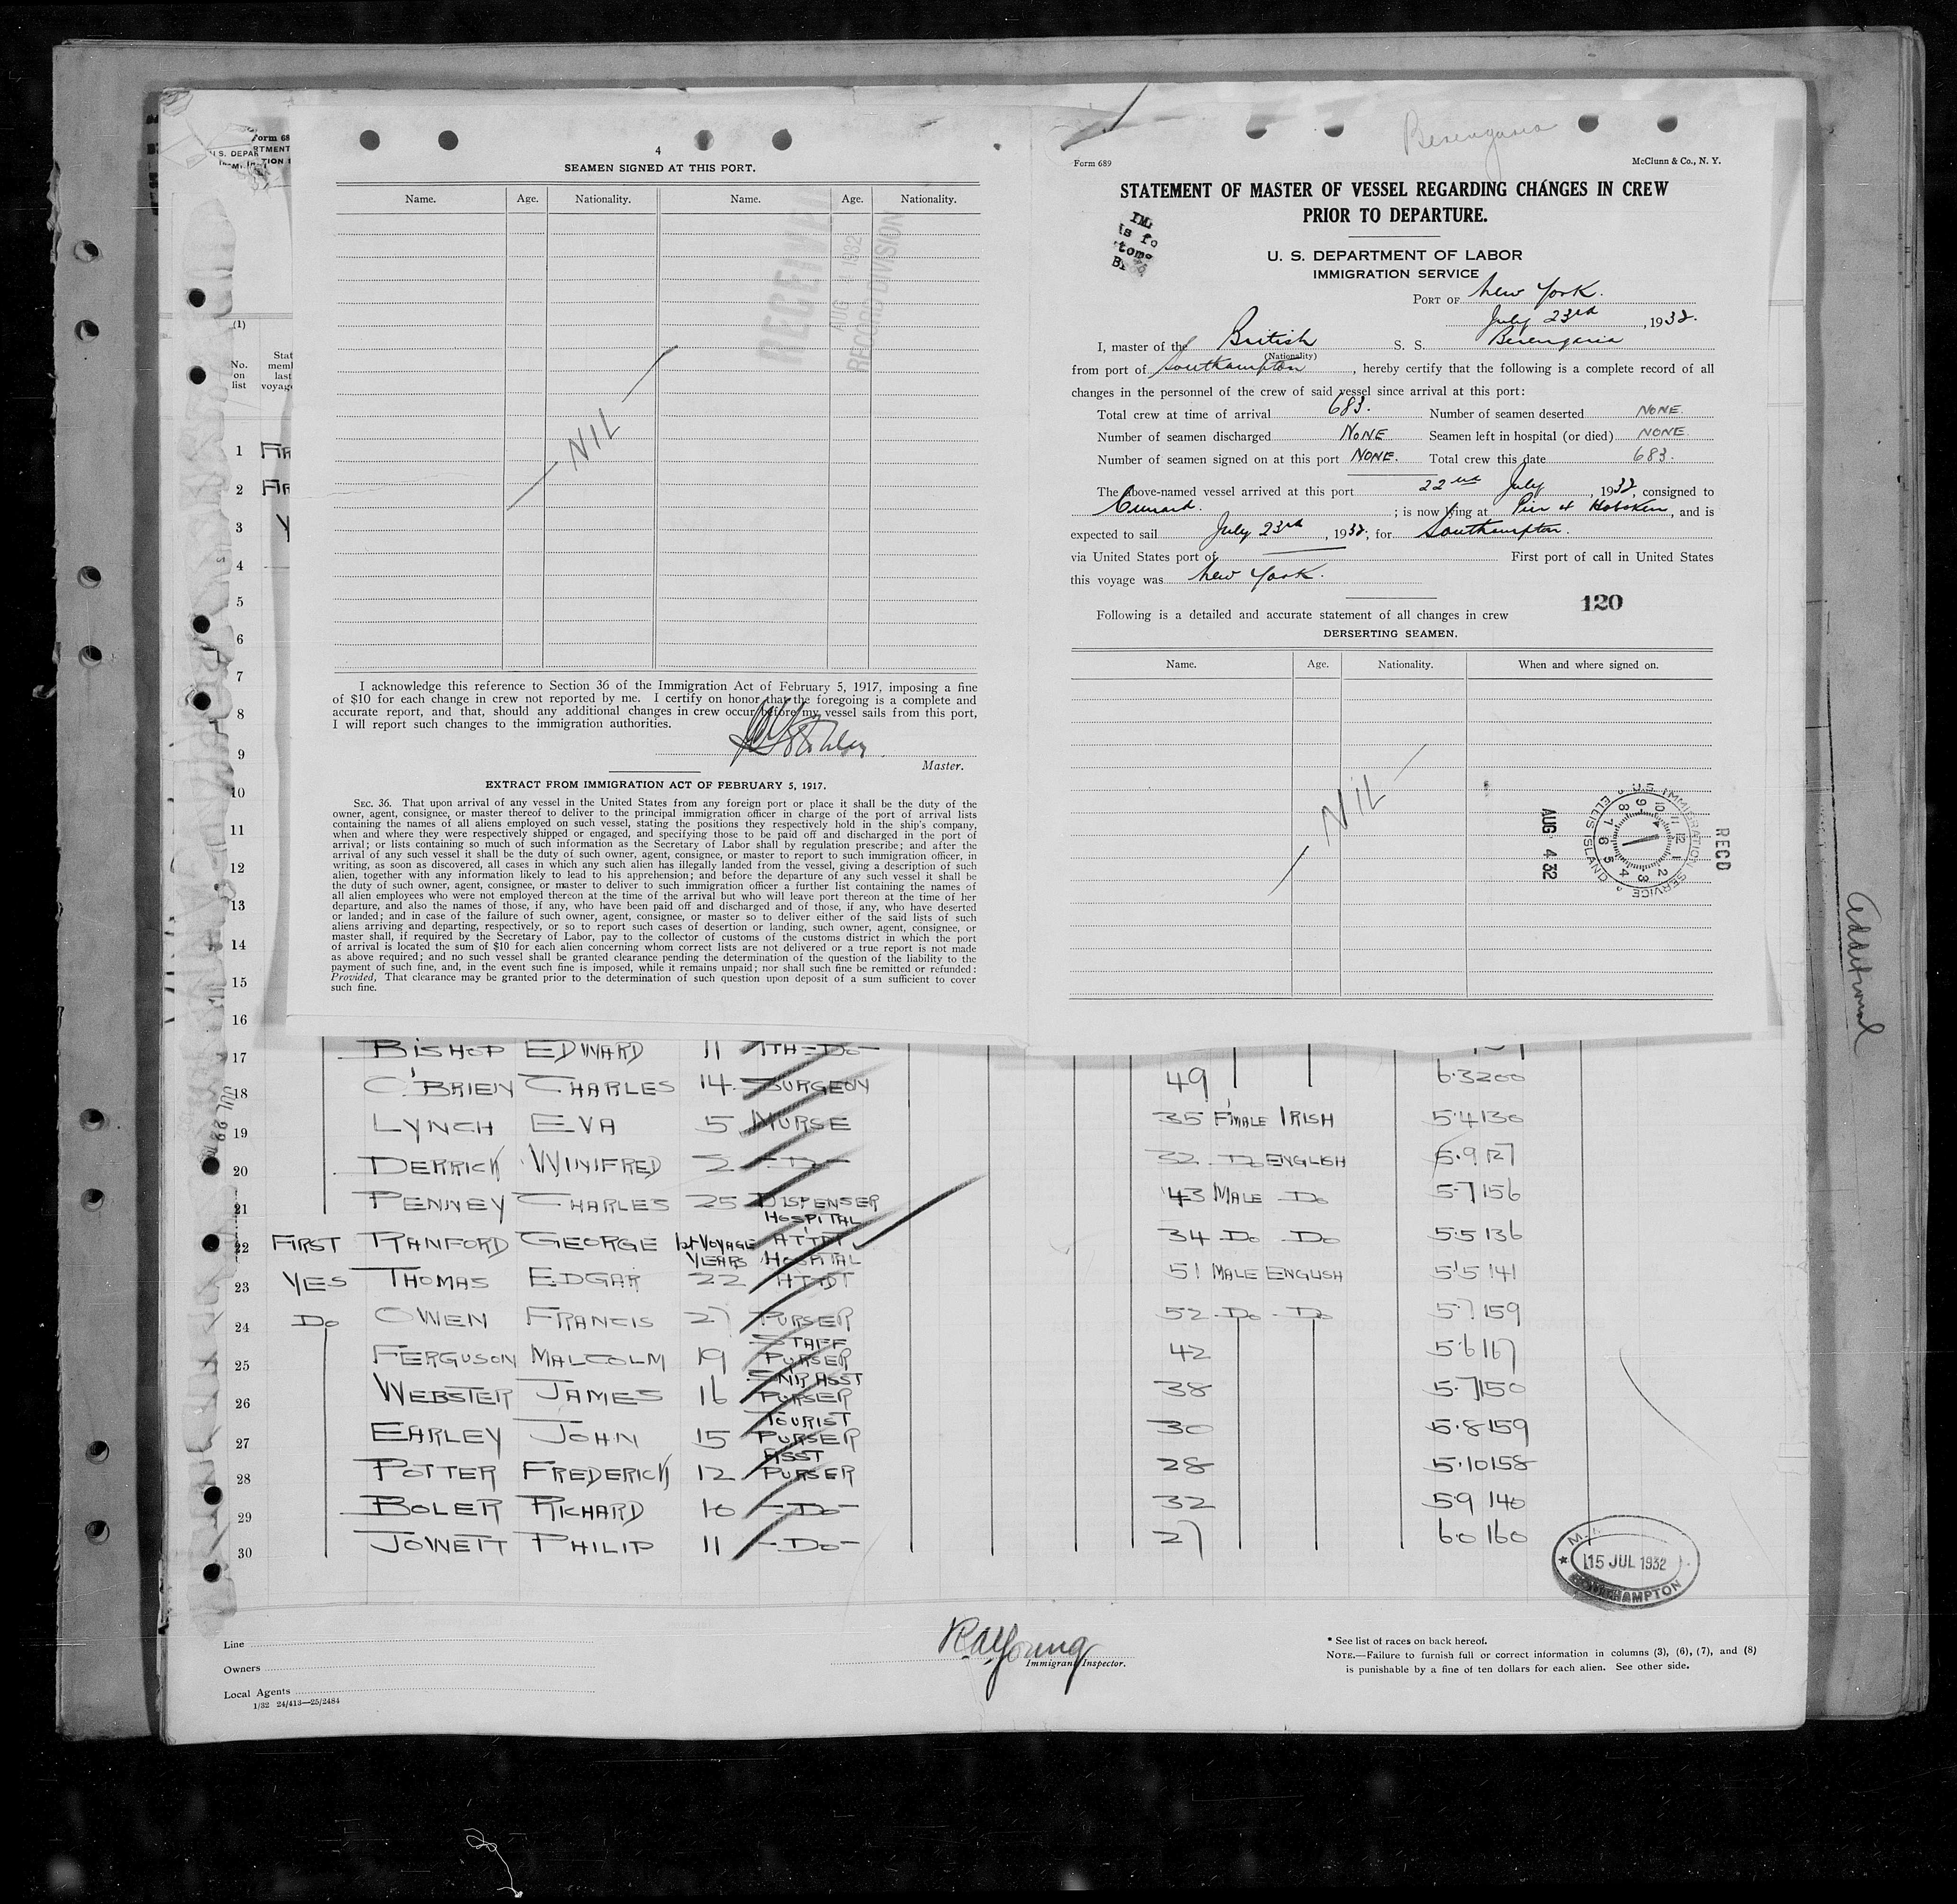 4
SEAMEN SIGNED AT THIS PORT.
Name. Age. Nationality. Name. Age. Nationality.
RECEIVED
AUG 1932
RECORD DIVISION
NIL
I acknowledge this reference to Section 36 of the Immigration Act of February 5, 1917, imposing a fine
of $10 for each change in crew not reported by me. I certify on honor that the foregoing is a complete and
accurate report, and that, should any additional changes in crew occur before my vessel sails from this port,
I will report such changes to the immigration authorities.
Master.
EXTRACT FROM IMMIGRATION ACT OF FEBRUARY 5, 1917.
SEC. 36. That upon arrival of any vessel in the United States from any foreign port or place it shall be the duty of the
owner, agent, consignee, or master thereof to deliver to the principal immigration officer in charge of the port of arrival lists
containing the names of all aliens employed on such vessel, stating the positions they respectively hold in the ship's company,
when and where they were respectively shipped or engaged, and specifying those to be paid off and discharged in the port of
arrival; or lists containing so much of such information as the Secretary of Labor shall by regulation prescribe; and after the
arrival of any such vessel it shall be the duty of such owner, agent, consignee, or master to report to such immigration officer, in
writing, as soon as discovered, all cases in which any such alien has illegally landed from the vessel, giving a description of such
alien, together with any information likely to lead to his apprehension; and before the departure of any such vessel it shall be
the duty of such owner, agent, consignee, or master to deliver to such immigration officer a further list containing the names of
all alien employees who were not employed thereon at the time of the arrival but who will leave port thereon at the time of her
departure, and also the names of those, if any, who have been paid off and discharged and of those, if any, who have deserted
or landed; and in case of the failure of such owner, agent, consignee, or master so to deliver either of the said lists of such
aliens arriving and departing, respectively, or so to report such cases of desertion or landing, such owner, agent, consignee, or
master shall, if required by the Secretary of Labor, pay to the collector of customs of the customs district in which the port
of arrival is located the sum of $10 for each alien concerning whom correct lists are not delivered or a true report is not made
as above required; and no such vessel shall be granted clearance pending the determination of the question of the liability to the
payment of such fine, and, in the event such fine is imposed, while it remains unpaid; nor shall such fine be remitted or refunded:
Provided, That clearance may be granted prior to the determination of such question upon deposit of a sum sufficient to cover
such fine.
Berengaria
Form 689 McClunn & Co., N. Y.
STATEMENT OF MASTER OF VESSEL REGARDING CHANGES IN CREW
PRIOR TO DEPARTURE.
U. S. DEPARTMENT OF LABOR
IMMIGRATION SERVICE
PORT OF New York.
July 23rd, 1932.
I, master of the British S. S. Berengaria
(Nationality)
from port of Southampton, hereby certify that the following is a complete record of all
changes in the personnel of the crew of said vessel since arrival at this port:
Total crew at time of arrival 683. Number of seamen deserted NONE.
Number of seamen discharged NONE Seamen left in hospital (or died) NONE.
Number of seamen signed on at this port NONE. Total crew this date 683.
The above-named vessel arrived at this port 22nd July, 1932, consigned to
Cunard. ; is now lying at Pier 4 Hoboken, and is
expected to sail July 23rd, 1932, for Southampton.
via United States port of First port of call in United States
this voyage was New York.
120
Following is a detailed and accurate statement of all changes in crew
DERSERTING SEAMEN.
Name. Age. Nationality. When and where signed on.
NIL
RECD
U.S. IMMIGRATION SERVICE
ELLIS ISLAND
AUG 4 32
Additional
(1)
No. on list
1
2
3
4
5
6
7
8
9
10
11
12
13
14
15
16
17 BISHOP EDWARD 11 7TH -DO-
18 O'BRIEN CHARLES 14 SURGEON 49 6.3 200
19 LYNCH EVA 5 NURSE 35 F'MALE IRISH 5.4 130
20 DERRICK WINIFRED 2 -DO- 32 DO ENGLISH 5.9 127
21 PENNEY CHARLES 25 DISPENSER 43 MALE DO 5.7 156
22 FIRST RANFORD GEORGE 1st VOYAGE HOSPITAL ATTDT 34 DO DO 5.5 136
23 YES THOMAS EDGAR YEARS 22 HOSPITAL ATTDT 51 MALE ENGLISH 5.5 141
24 DO OWEN FRANCIS 27 PURSER 52 DO DO 5.7 159
25 FERGUSON MALCOLM 19 STAFF PURSER 42 5.6 167
26 WEBSTER JAMES 16 SNR ASST PURSER 38 5.7 150
27 EARLEY JOHN 15 TOURIST PURSER 30 5.8 159
28 POTTER FREDERICK 12 ASST PURSER 28 5.10 158
29 BOLER RICHARD 10 -DO- 32 5.9 140
30 JOWETT PHILIP 11 -DO- 27 6.0 160
15 JUL 1932
SOUTHAMPTON
Line
Owners
Local Agents
1/32 24/413—25/2484
R A Young
Immigrant Inspector.
* See list of races on back hereof.
NOTE.—Failure to furnish full or correct information in columns (3), (6), (7), and (8)
is punishable by a fine of ten dollars for each alien. See other side.